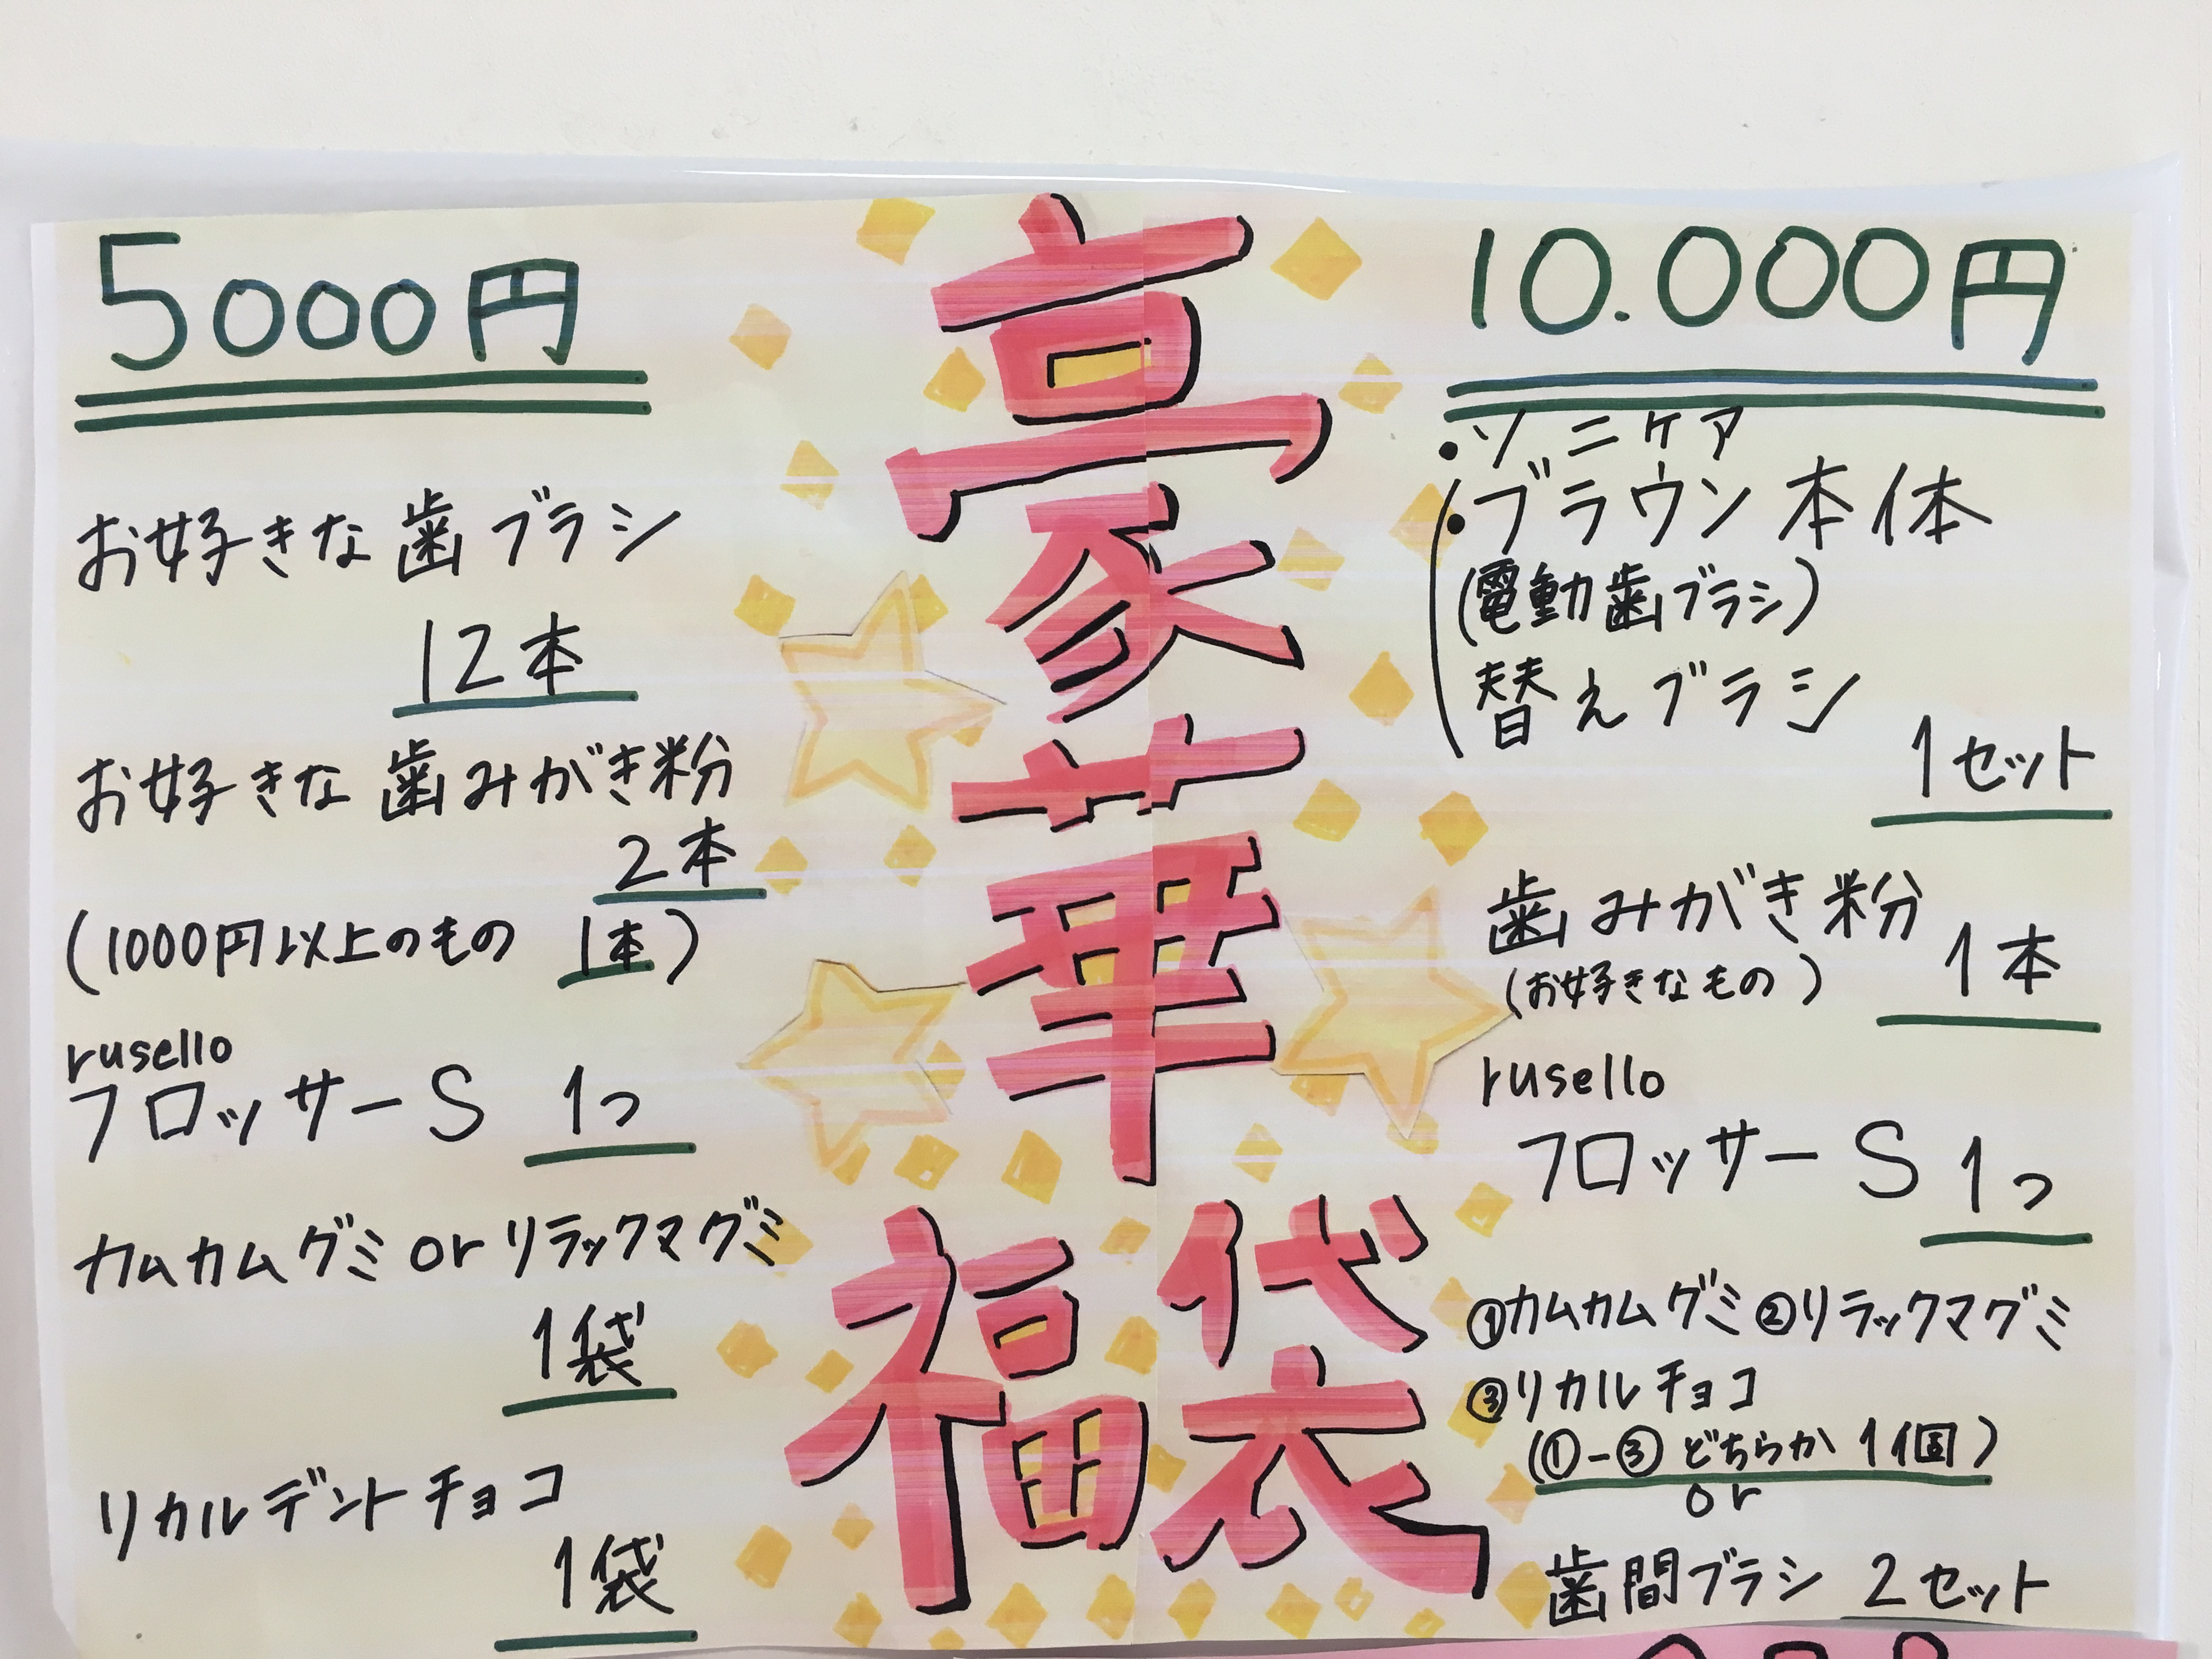 豪華
福袋
5000円
お好きな歯ブラシ
12本
お好きな歯みがき粉
2本
(1000円以上のもの 1本)
rusello
フロッサーS 1つ
カムカムグミ or リラックマグミ
1袋
リカルデントチョコ
1袋
10.000円
・ソニケア
・ブラウン本体
(電動歯ブラシ)
替えブラシ
1セット
歯みがき粉
1本
(お好きなもの)
rusello
フロッサーS 1つ
①カムカムグミ ②リラックマグミ
③リカルチョコ
(①-③ どちらか 1個)
or
歯間ブラシ 2セット